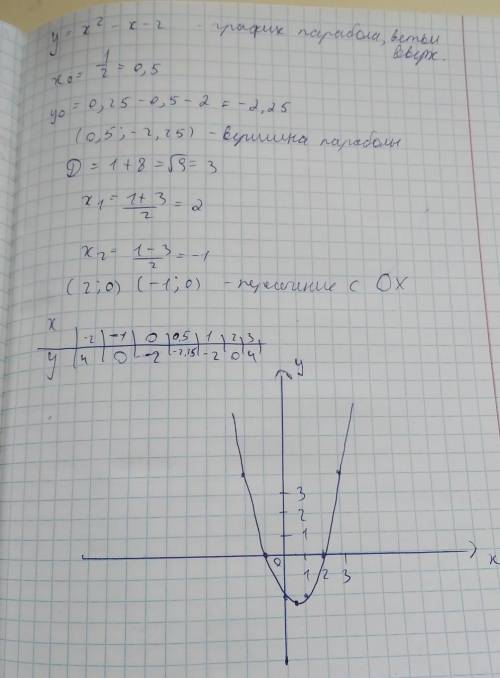 y = x² - x - 2 - график парабола, ветви
вверх.
x₀ = 1/2 = 0,5
y₀ = 0,25 - 0,5 - 2 = -2,25
(0,5; -2,25) - вершина параболы
D = 1 + 8 = √9 = 3
x₁ = (1+3)/2 = 2
x₂ = (1-3)/2 = -1
(2;0) (-1;0) - пересечение с OX
x | -2 | -1 | 0 | 0,5 | 1 | 2 | 3
y | 4 | 0 | -2 | -2,25 | -2 | 0 | 4
y
3
2
1
0 1 2 3 x